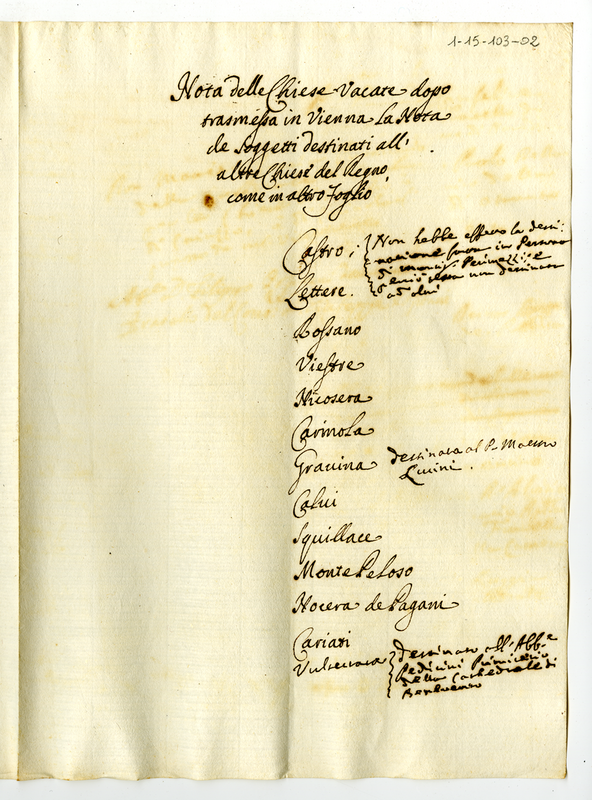 1-15-103-02
Nota delle Chiese Vacate dopo
trasmessa in Vienna La Nota
de Soggetti destinati all'
altre Chiese del Regno,
come in altro foglio
Castro; Non hebbe effetto la desti:
natione in Persona
di monsr. Perimezzi e
non destinata
ad altri
Lettere.
Rossano
Viestre
Nicosera
Carinola
Gravina destinata al P. Maestro
Lucini.
Calvi
Squillace
Monte Peloso
Nocera de Pagani
Cariati
Vulturara destinato all'Abb.e
Pedicini Primicerio
della Cathedrale di
Benevento